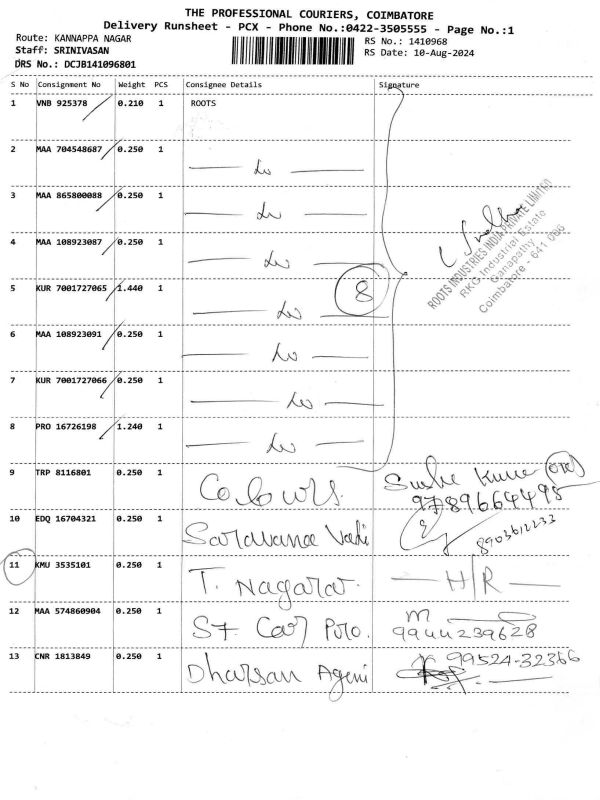 THE PROFESSIONAL COURIERS, COIMBATORE
Delivery Runsheet - PCX - Phone No.:0422-3505555 - Page No.:1
Route: KANNAPPA NAGAR
RS No.: 1410968
Staff: SRINIVASAN
RS Date: 10-Aug-2024
DRS No.: DCJB141096801
S No Consignment No Weight PCS Consignee Details Signature
1 VNB 925378 0.210 1 ROOTS
2 MAA 704548687 0.250 1
3 MAA 865800088 0.250 1
4 MAA 108923087 0.250 1
ROOTS INDUSTRIES INDIA PRIVATE LIMITED
RKG Industrial Estate
Ganapathy
Coimbatore - 641 006
5 KUR 7001727065 1.440 1
8
6 MAA 108923091 0.250 1
7 KUR 7001727066 0.250 1
8 PRO 16726198 1.240 1
9 TRP 8116801 0.250 1 Colours
9789664495
10 EDQ 16704321 0.250 1 Saravana
8903612233
11 KMU 3535101 0.250 1 T. Nagarar - H/R -
12 MAA 574860904 0.250 1 Car Pro.
9944239628
13 CNR 1813849 0.250 1 Dharsan Ageni 99524-32366